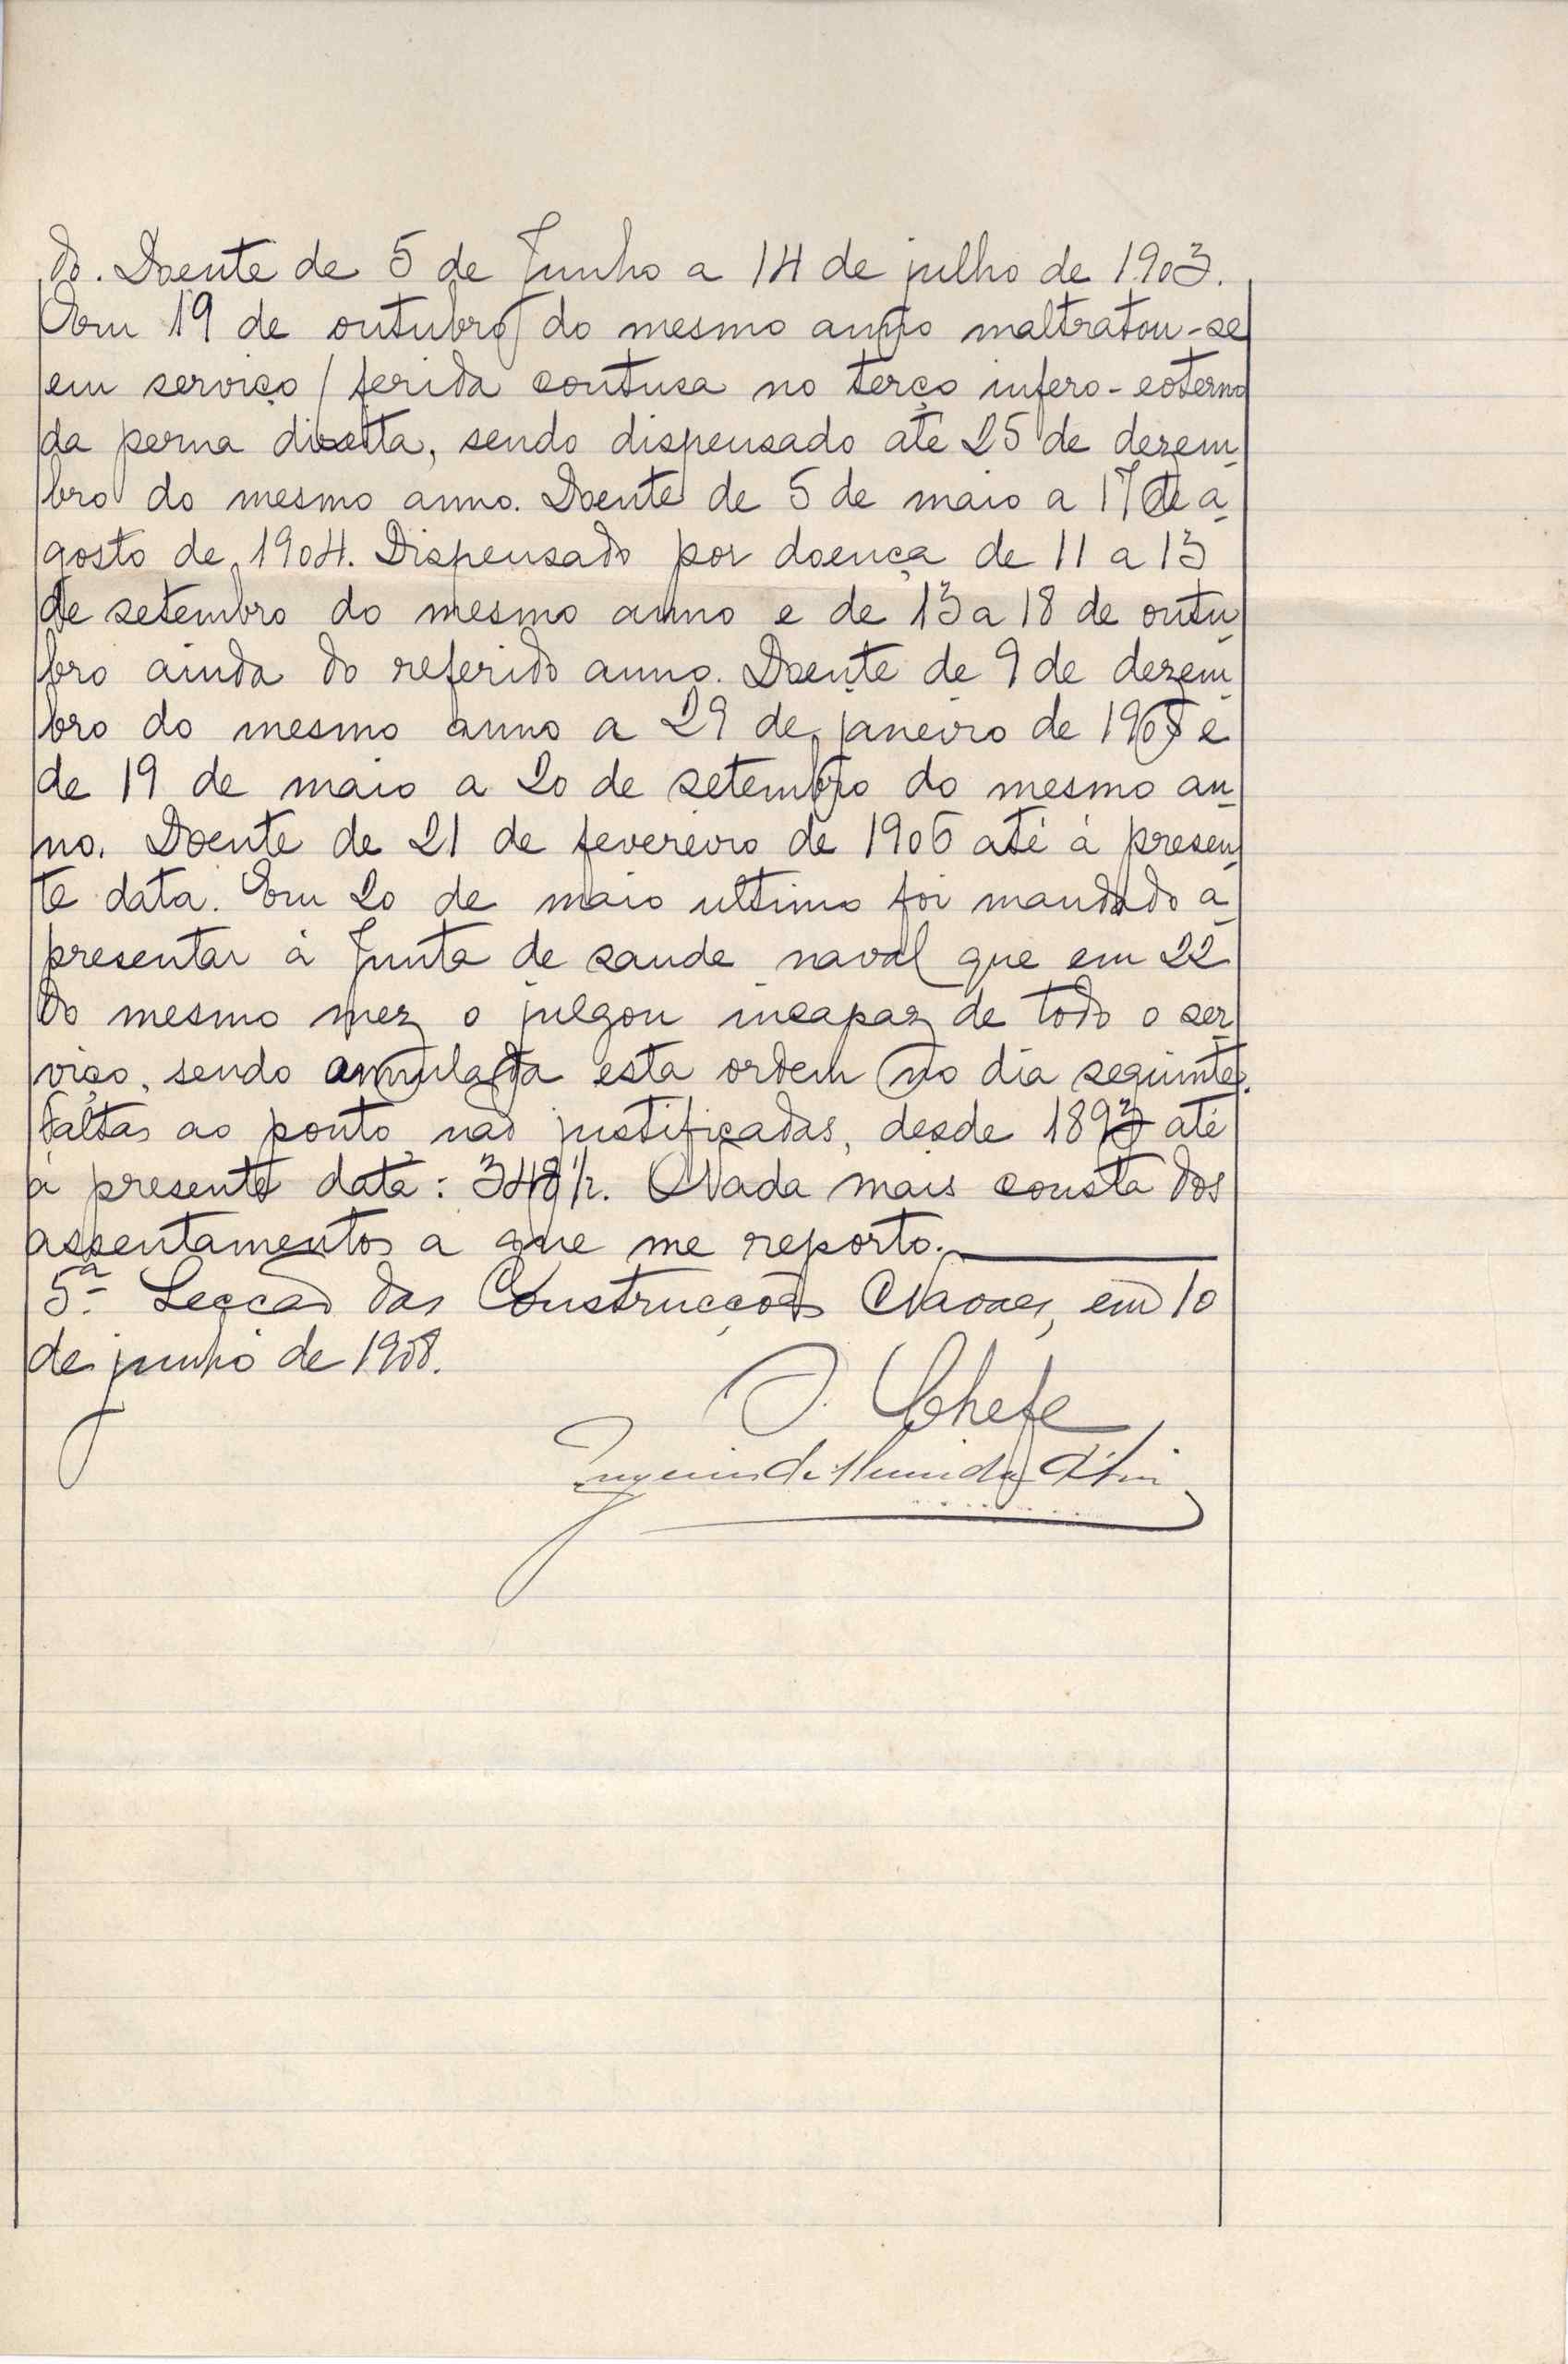 do. Doente de 5 de Junho a 14 de julho de 1903.
Em 19 de outubro do mesmo anno maltratou-se
em serviço / ferida contusa no terço infero-externo
da perna direita, sendo dispensado até 25 de dezem-
bro do mesmo anno. Doente de 5 de maio a 17 de a-
gosto de 1904. Dispensado por doença de 11 a 13
de setembro do mesmo anno e de 13 a 18 de outu-
bro ainda do referido anno. Doente de 9 de dezem-
bro do mesmo anno a 29 de janeiro de 1905 e
de 19 de maio a 20 de setembro do mesmo an-
no. Doente de 21 de fevereiro de 1906 até á presen-
te data. Em 20 de maio ultimo foi mandado a-
presentar á Junta de saude naval que em 22
do mesmo mez o julgou incapaz de todo o ser-
viço, sendo annulada esta ordem no dia seguinte.
Faltas ao ponto não justificadas, desde 1893 até
á presente data: 348 1/2. Nada mais consta dos
assentamentos a que me reporto.
5ª Secção das Construcções Navaes, em 10
de junho de 1908.
O. Chefe